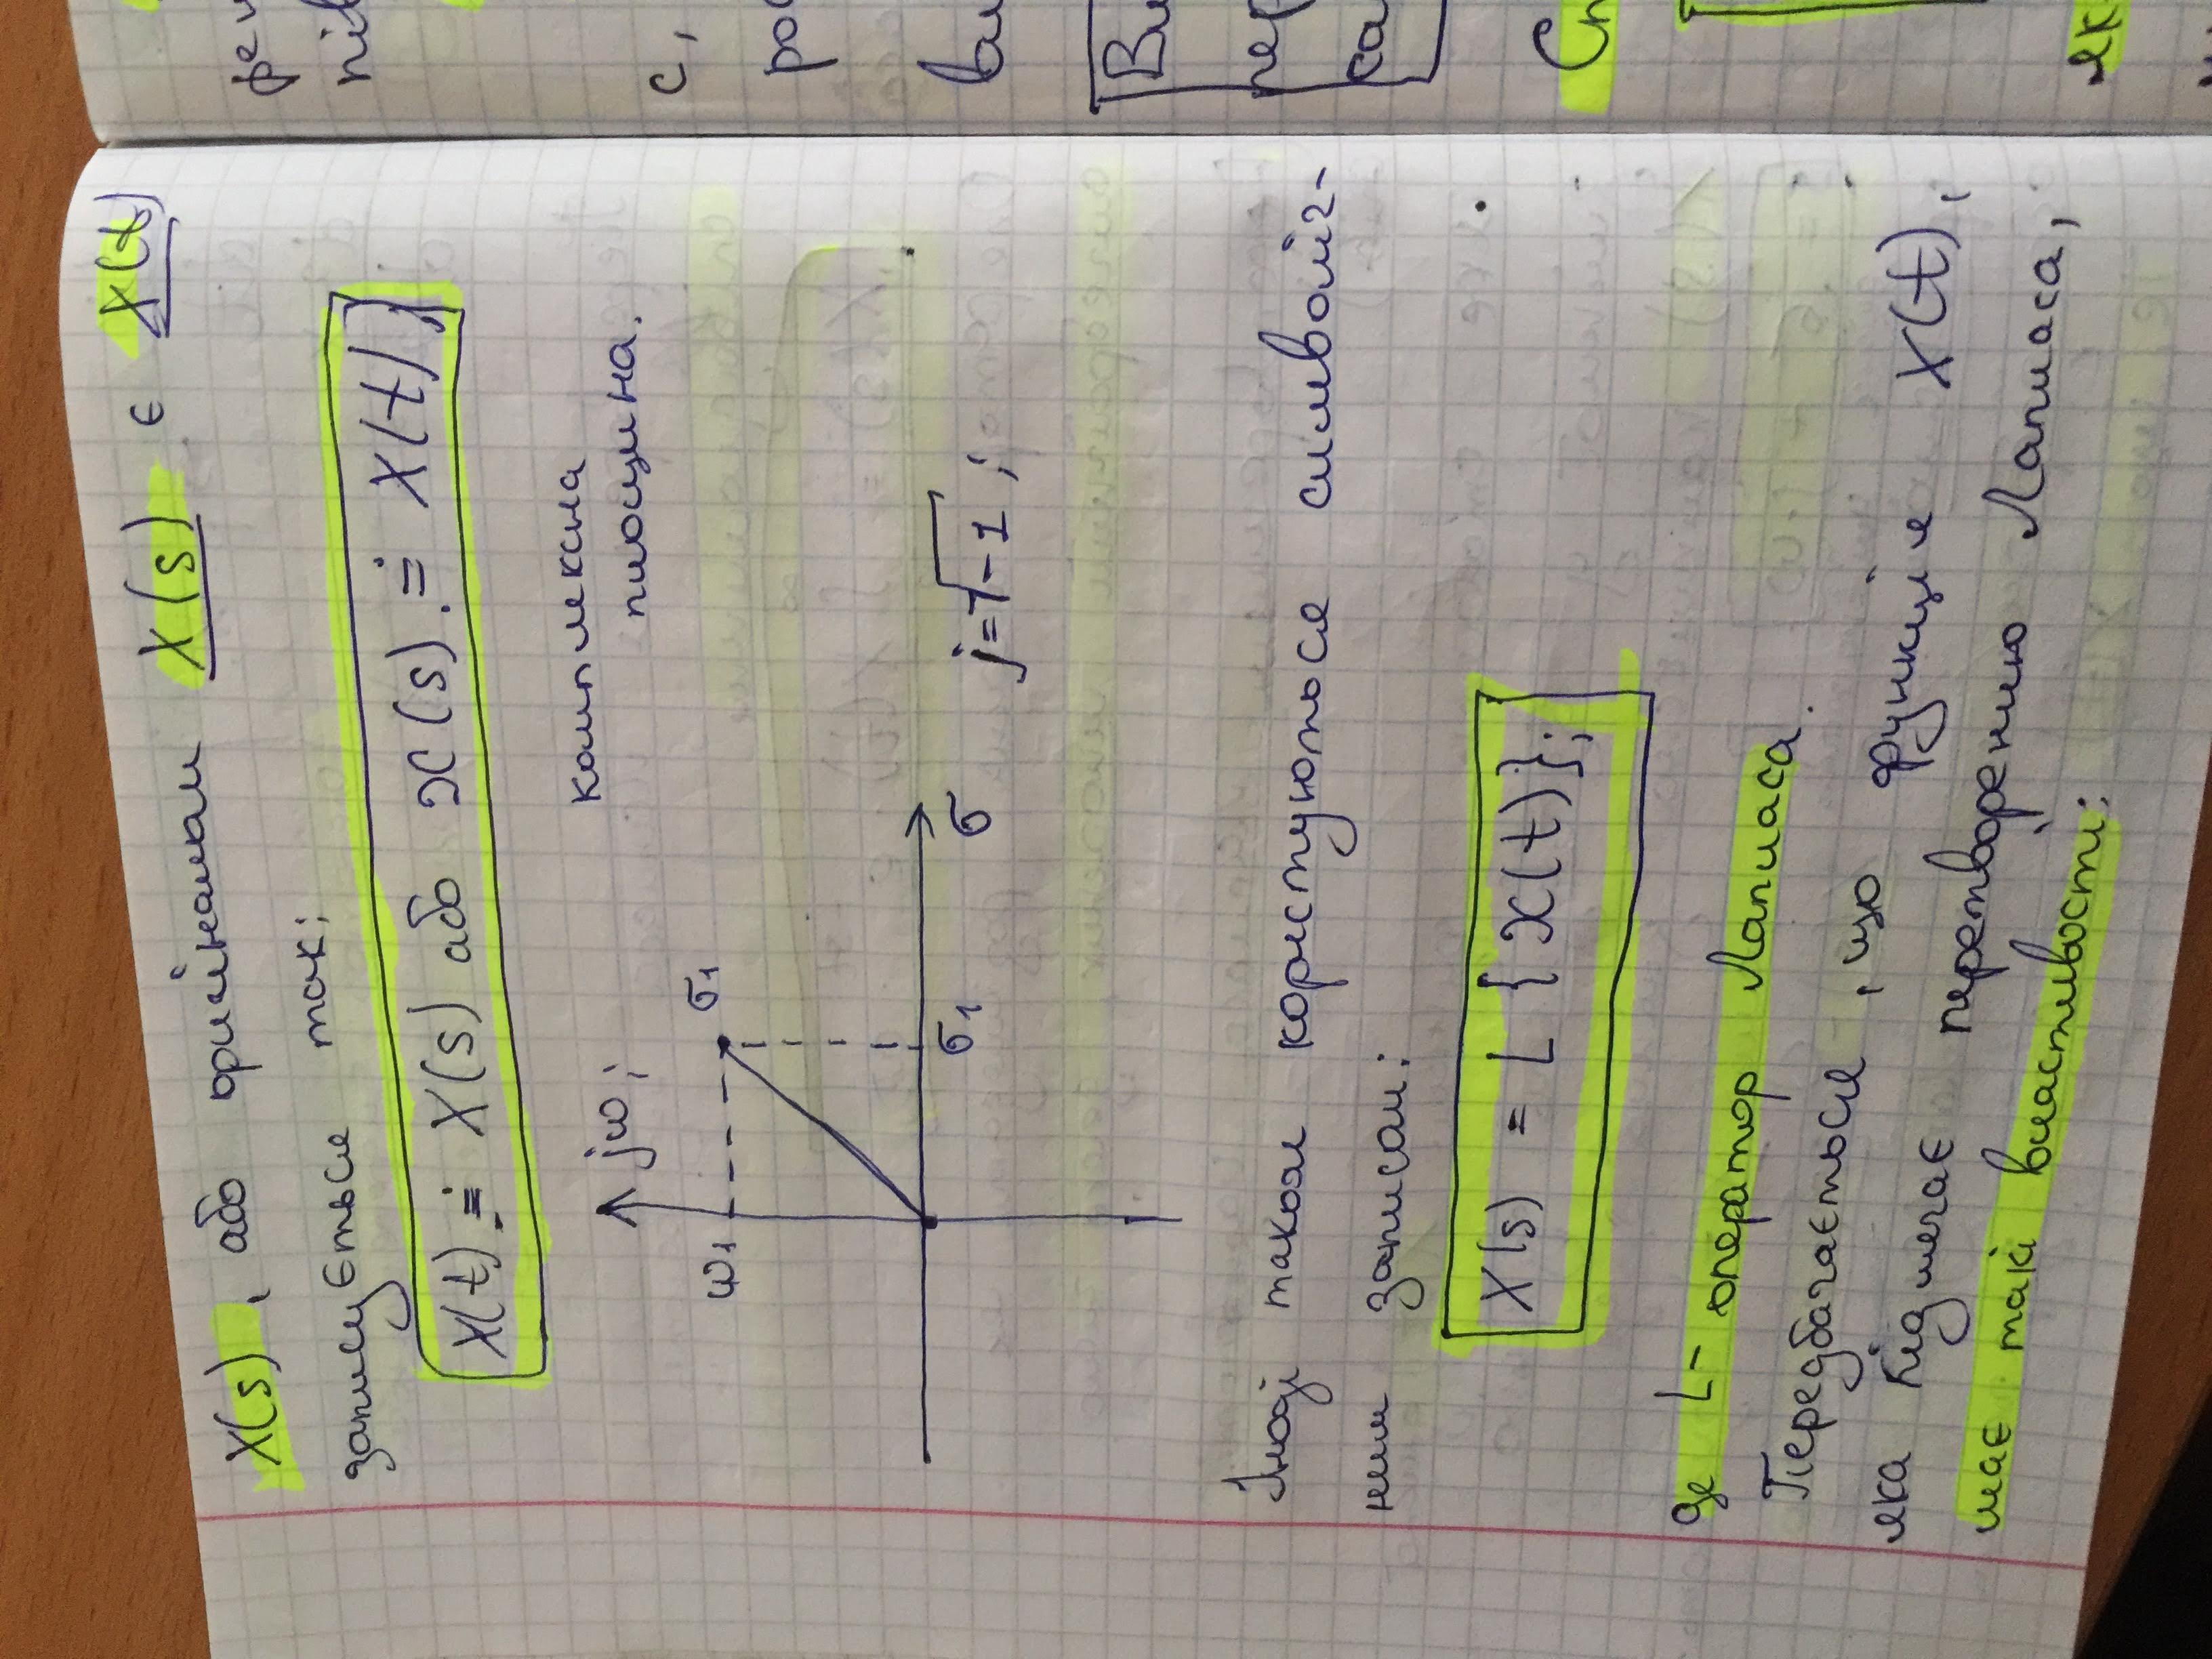 X(s), або оригіналом X(s) є X(t)
записується так:
X(t) ≓ X(s) або x(s) ≓ X(t),
jω;
комплексна
площина.
ω1
σ1
σ1
σ
j=√-1;
Іноді також користуються символіч-
ним записом:
X(s) = L {x(t)};
де L- оператор Лапласа.
Передбачається, що функція X(t),
яка підлягає перетворенню Лапласа,
має такі властивості:
с,